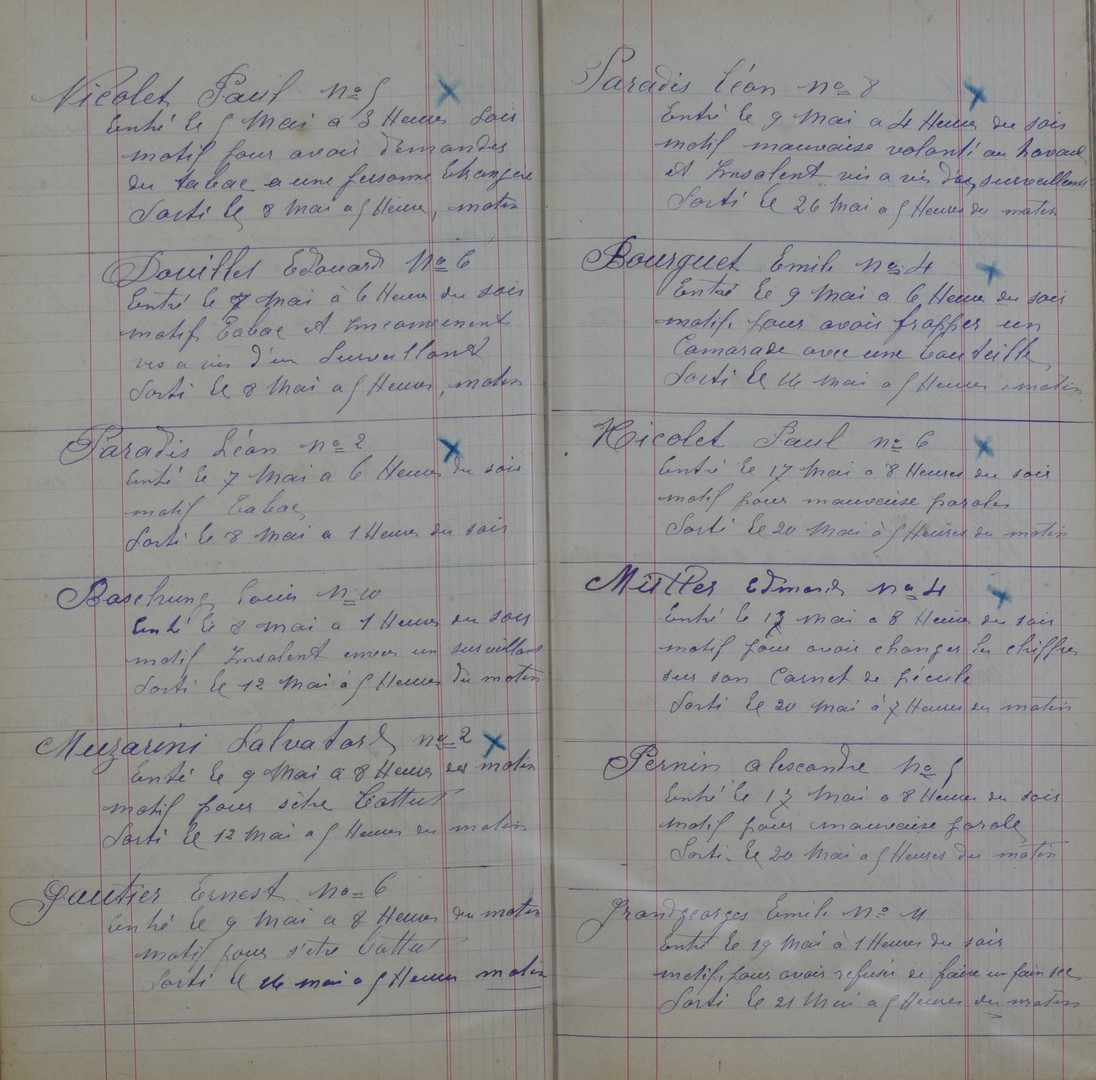 Nicolet Paul No 5
Entré le 5 Mai a 3 Heures soir
motif pour avoir demandés
du tabac a une personne Etrangère
Sorti le 8 Mai a 5 Heure, matin
Douillet Edouard No 6
Entré le 7 Mai à 6 Heures du soir
motif Tabac et
vis a vis d'un Surveillant
Sorti le 8 Mai a 5 Heures, matin
Paradis Léon No 2
Entré le 7 Mai a 6 Heures du soir
motif Tabac
Sorti le 8 Mai a 1 Heures du soir
Baschung Louis No 10
Entré le 8 mai a 1 Heures du soir
motif Insolent envers un surveillant
Sorti le 12 Mai à 5 Heures du matin
Muzarini Salvatord no 2
Entré le 9 Mai a 8 Heures du matin
motif pour sêtre battut
Sorti le 12 Mai a 5 Heures du matin
Gautier Ernest No 6
Entré le 9 Mai a 8 Heures du matin
motif pour s'etre battut
Sorti le 16 mai a 5 Heures matin
Paradis Léon No 8
Entré le 9 Mai a 4 Heures du soir
motif mauvaise volonté au travail
et Insolent vis a vis des surveillants
Sorti le 26 Mai a 5 Heures du matin
Bourquet Emile No 4
Entré le 9 Mai a 6 Heure du soir
motif, pour avoir frapper un
Camarade avec une bouteille
Sorti le 16 Mai a 5 Heures, matin
Nicolet Paul no 6
Entré le 17 Mai a 8 Heures du soir
motif pour mauvaise paroles
Sorti le 20 Mai à 5 Heures du matin
Müller Edmond No 4
Entré le 17 Mai a 8 Heures du soir
motif pour avoir changer les chiffres
sur son Carnet de pécule
Sorti le 20 Mai à 7 Heures du matin
Pernin alexandre No 5
Entré le 17 Mai a 8 Heures du soir
motif pour mauvaise parole
Sorti le 20 Mai a 5 Heures du matin
Grandgeorges Emile No 11
Entré le 19 Mai à 1 Heures du soir
motif, pour avoir refusér de faire un pain sec
Sorti le 21 Mai a 5 Heures du matin